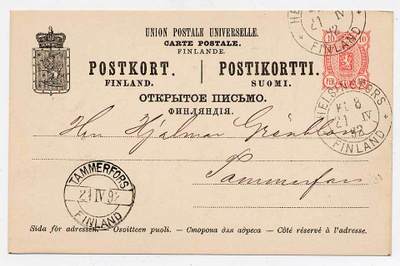 UNION POSTALE UNIVERSELLE.
CARTE POSTALE.
FINLANDE.
POSTKORT. | POSTIKORTTI.
FINLAND. SUOMI.
ОТКРЫТОЕ ПИСЬМО.
ФИНЛЯНДІЯ.
10 10
21 IV
92
FINLAND
HELSINGFORS
21 IV
92
FINLAND
Herr Hjalmar Granblom
Tammerfors
TAMMERFORS
21 IV 92
FINLAND
Sida för adressen. - Osoitteen puoli. - Сторона для адреса - Côté réservé à l'adresse.